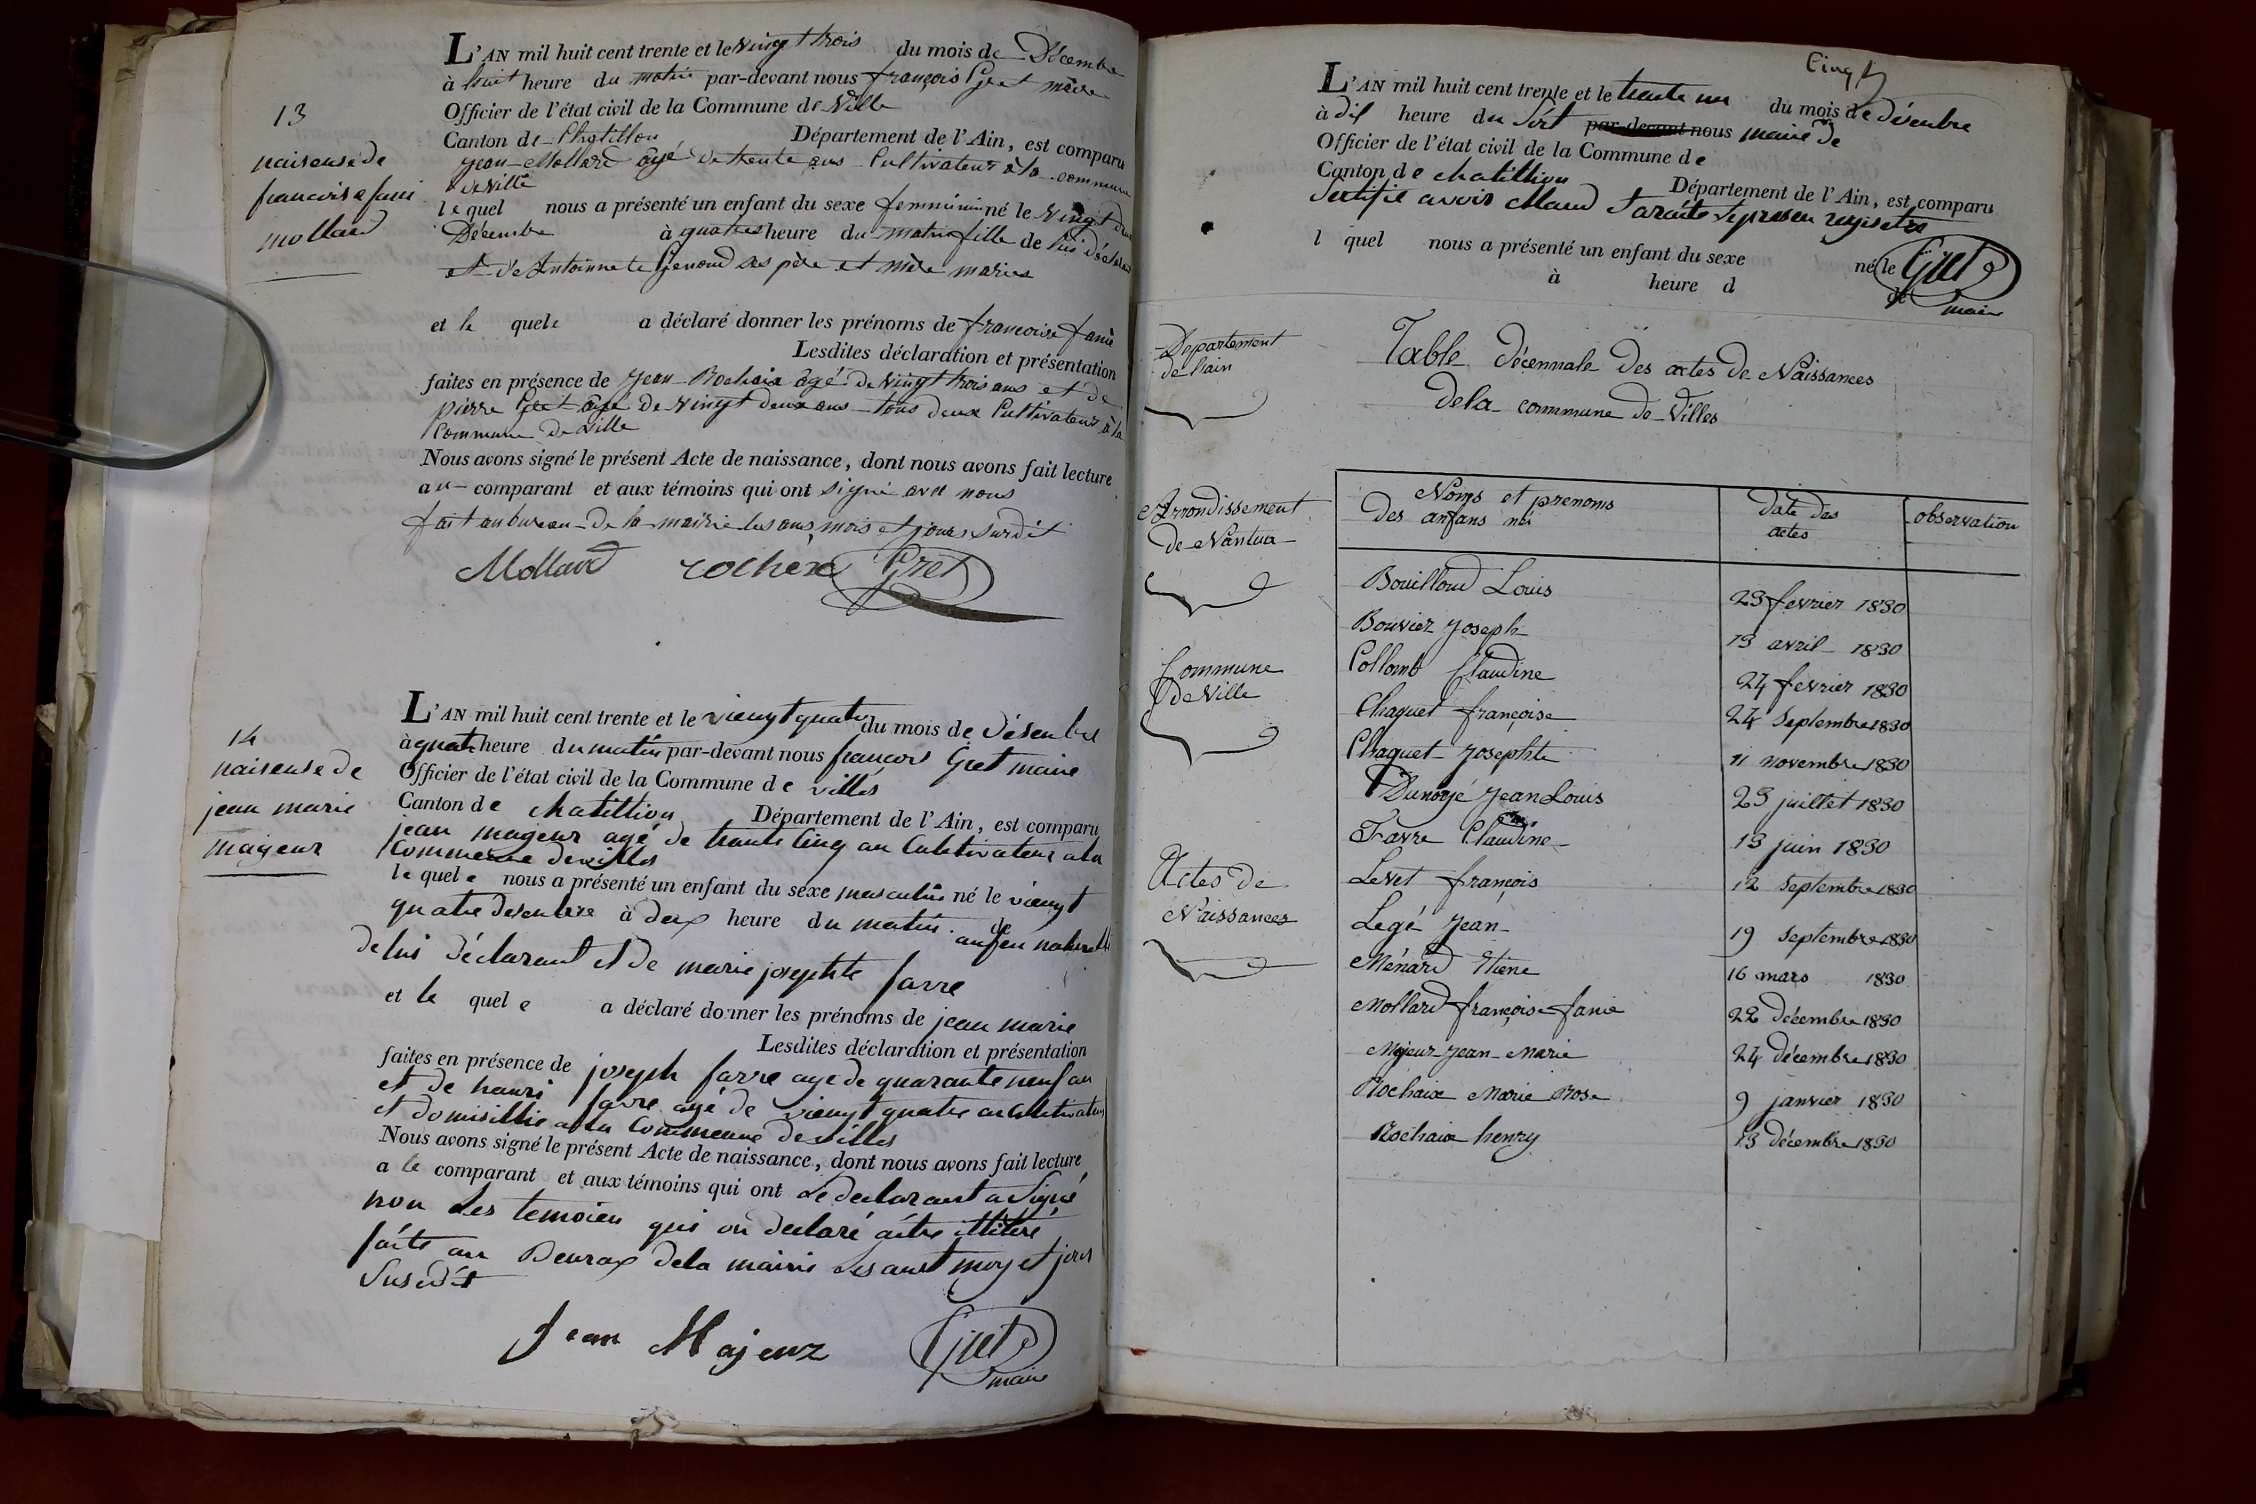 13
naisense de
francoise fani
mollard
L'AN mil huit cent trente et le vingt trois du mois de Décembre
à huit heure du matin par-devant nous françois Gret maire
Officier de l'état civil de la Commune de Ville
Canton de Chatillon Département de l'Ain, est comparu
jean Mollard âgé de trente ans Cultivateur à la commune
de Ville
lequel nous a présenté un enfant du sexe femminin né le vingt deux
Décembre à quatres heure du matin fille de lui déclarant
et de Antoinnete Genoud ses père et mère maries
et le quele a déclaré donner les prénoms de francoise fanie
Lesdites déclaration et présentation
faites en présence de jean Rochaix âgé de vingt trois ans et de
pierre Gret âgé de vingt deux ans tous deux Cultivateur à la
Commune de Ville
Nous avons signé le présent Acte de naissance, dont nous avons fait lecture
au comparant et aux témoins qui ont signé avec nous
fait au bureau de la mairie les ans, mois et jours surdit
Mollard rochex Gret
14
naisense de
jean marie
majeur
L'AN mil huit cent trente et le viengt quatre du mois de désenbre
à quatre heure du matin par-devant nous françois Gret maire
Officier de l'état civil de la Commune de villes
Canton de chatillion Département de l'Ain, est comparu
jean majeur agé de trante cinq an Cultivateur a la
Commenne de villes
le quele nous a présenté un enfant du sexe masculin né le viengt
quatre desenbre à deux heure du matin de anfen naturelle
de lui déclarant et de marie josephte favre
et le quele a déclaré donner les prénoms de jean marie
Lesdites déclaration et présentation
faites en présence de joseph favre age de quarante neuf an
et de hanri favre agé de viengt quatre an Cultivateur
et domisillie a la Commeune de villes
Nous avons signé le présent Acte de naissance, dont nous avons fait lecture
a le comparant et aux témoins qui ont Le declarant a Signé
non Les temoien qui on declaré aître illiteré
faite au Beuraux de la mairie Les ans moy et jour
Susedit
Jean Majeur Gret
maire
L'AN mil huit cent trente et le trante un du mois de désenbre
à dil heure du soit par-devant nous maire de
Officier de l'état civil de la Commune de
Canton de chatillion Département de l'Ain, est comparu
Sertifie avoir
l quel nous a présenté un enfant du sexe né le Gret
à heure d de maire
Département
de l'ain
Table décennale des actes de Naissances
de la commune de Villes
Arrondissement
de Nantua
Commune
de Ville
Actes de
Naissances
Noms et prenoms
des anfans né | date des
actes | observation
Bouilloud Louis 23 fevrier 1830
Bouvier Joseph 13 avril 1830
Collomb Claudine 24 fevrier 1830
Chaquet françoise 24 Septembre 1830
Chaquet Josephte 11 novembre 1830
Dunoyé Jean Louis 23 juillet 1830
Favre Claudine 13 juin 1830
Levet françois 12 Septembre 1830
Legé Jean 19 Septembre 1830
Ménard Etiene 16 mars 1830
Mollard françoise fanie 22 décembre 1830
Majeur Jean Marie 24 décembre 1830
Rochaix Marie Rose 9 janvier 1830
Rochaix henry 13 décembre 1830